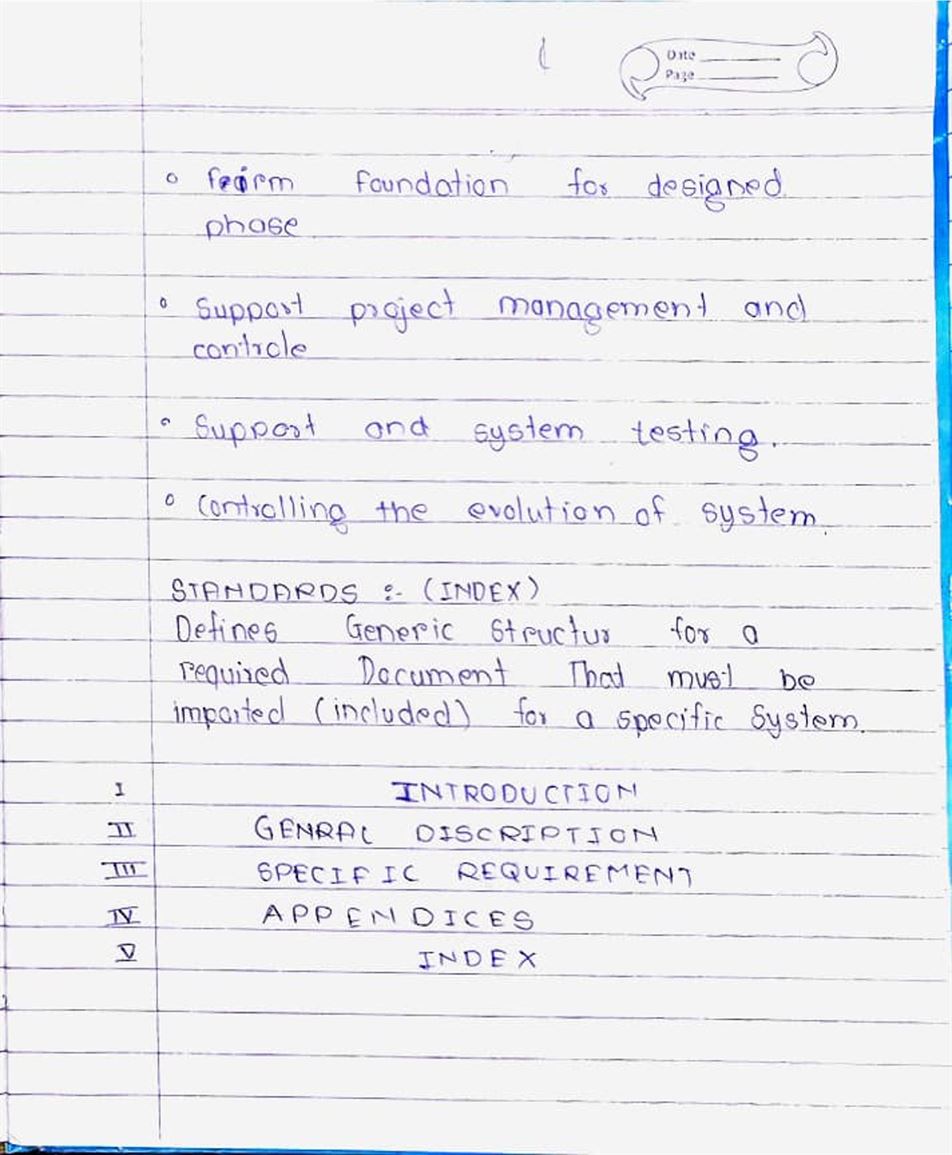 Date
Page
foundation for designed
phase
Support project management and
controle
Support and system testing.
Controlling the evolution of system.
STANDARDS :- (INDEX)
Defines Generic Structur for a
required Document That must be
imported (included) for a specific System.
I INTRODUCTION
II GENRAL DISCRIPTION
III SPECIFIC REQUIREMENT
IV APPENDICES
V INDEX